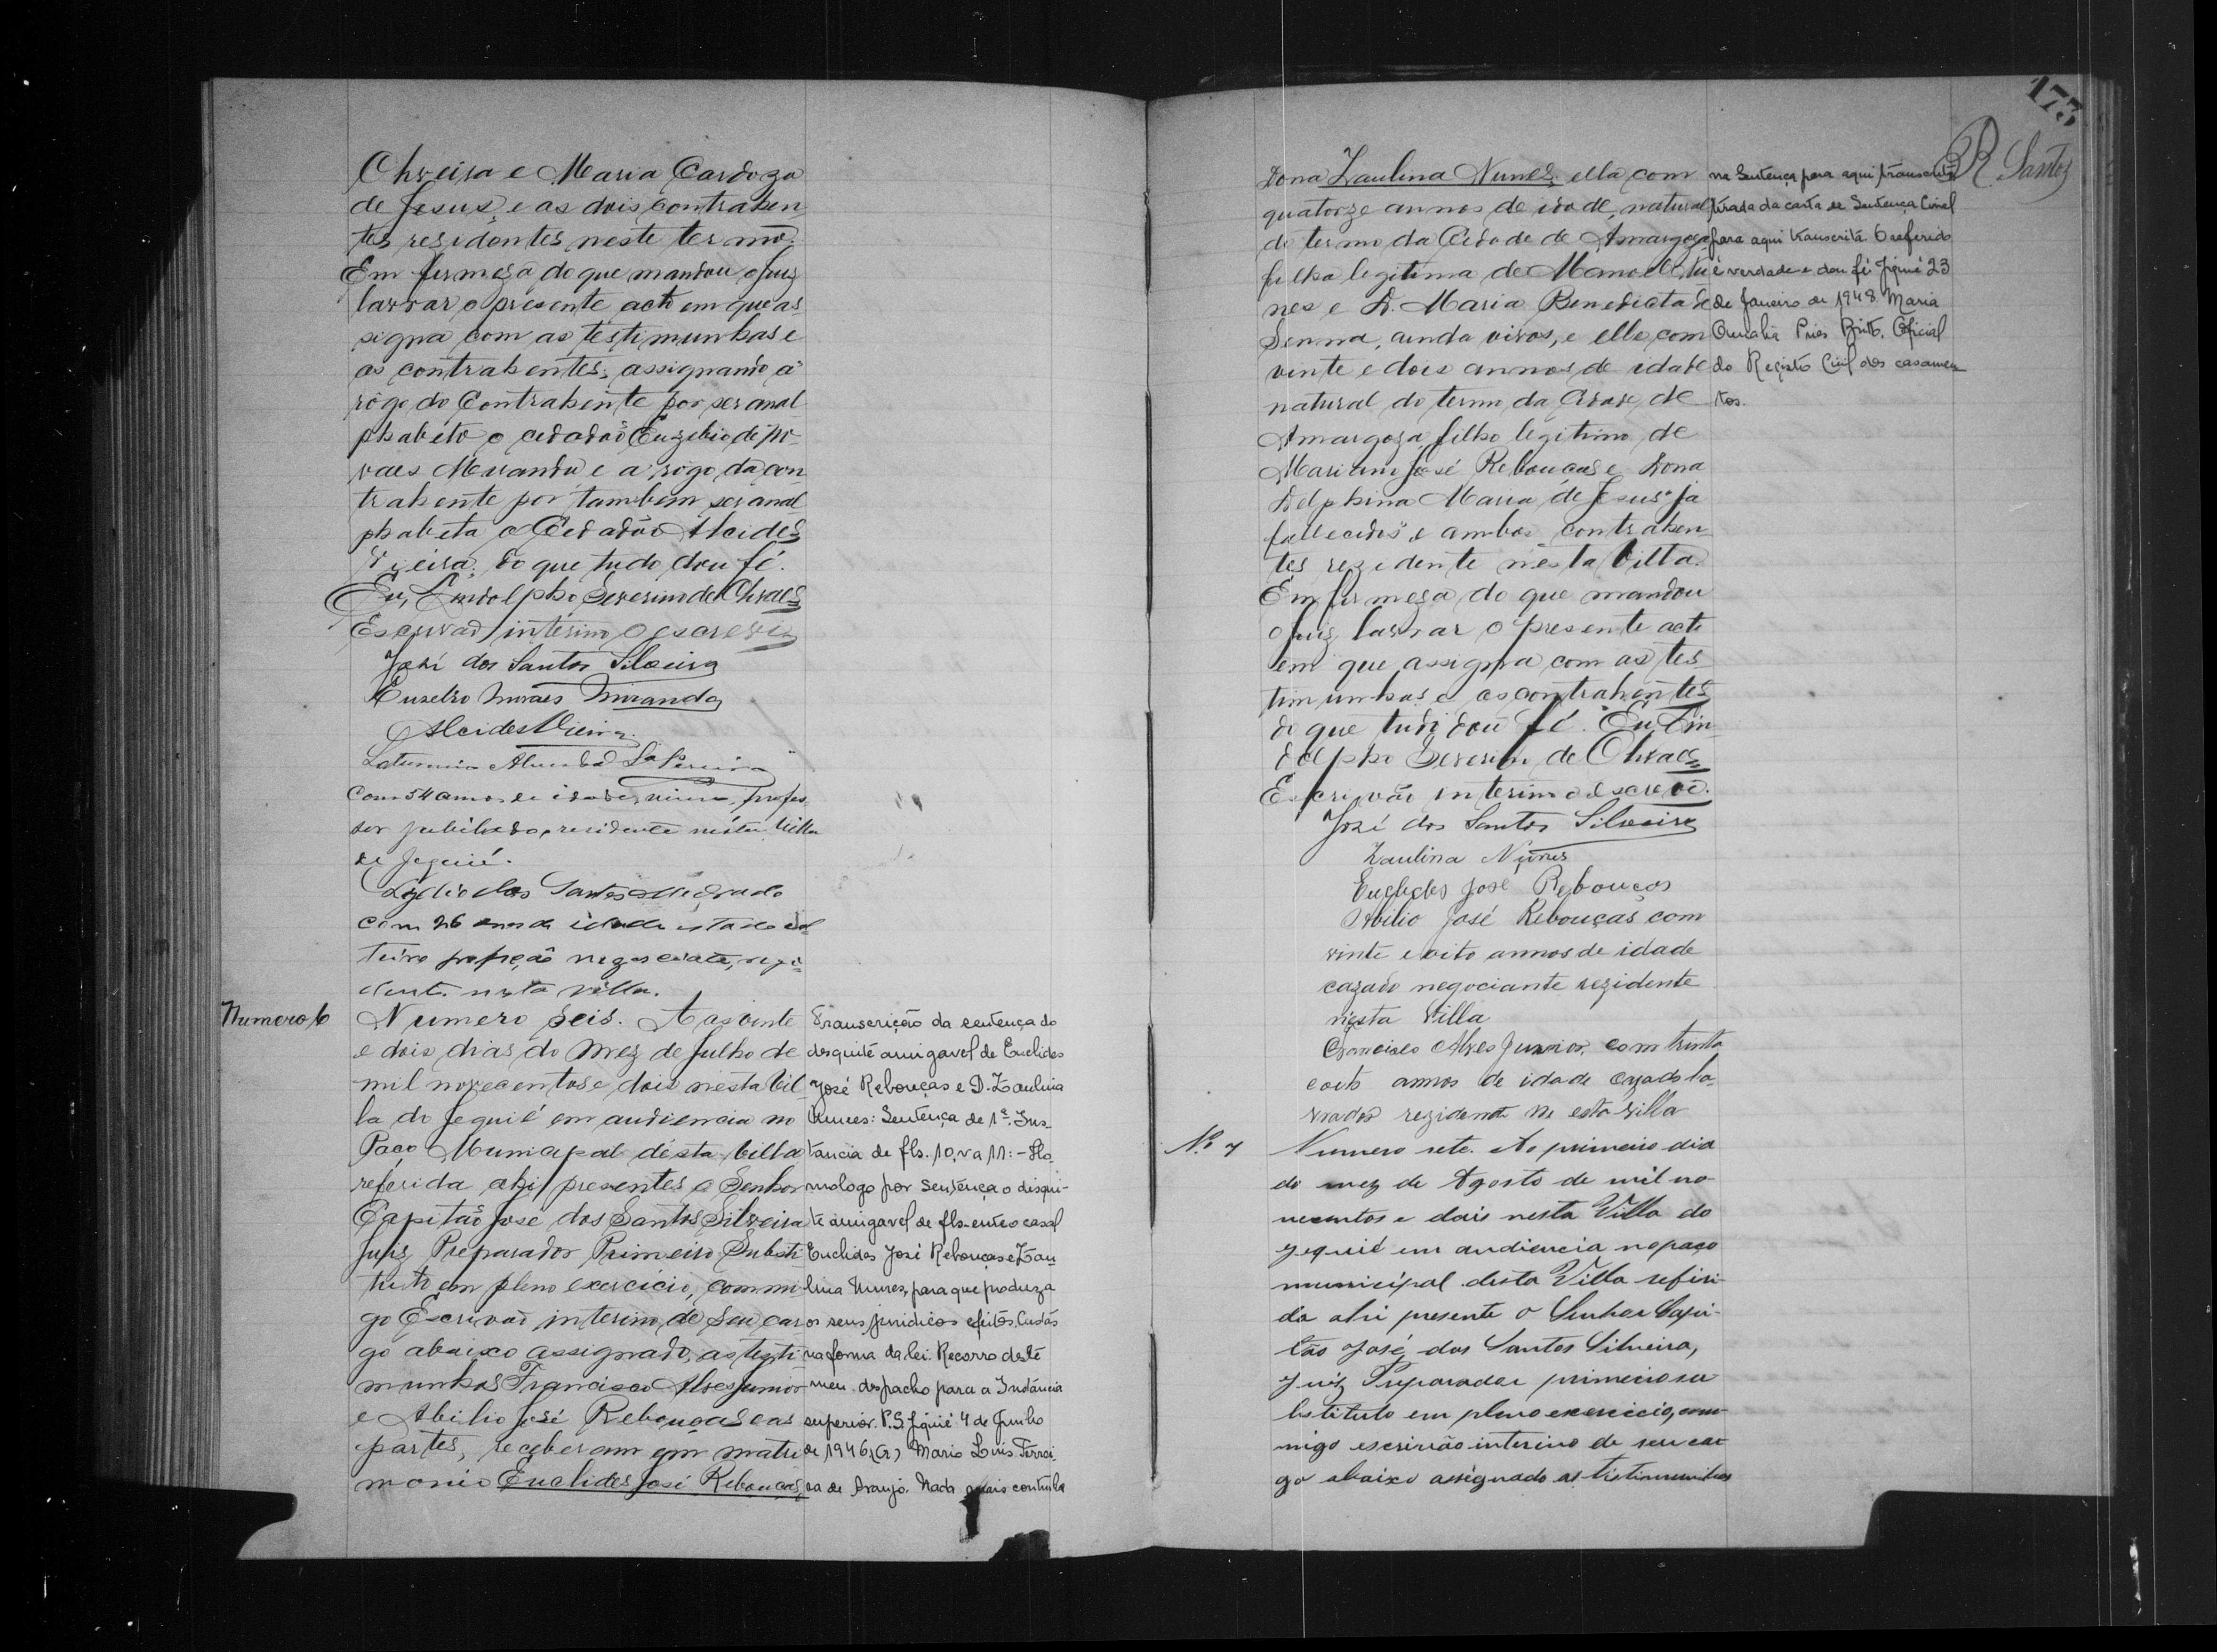 Oliveira e Maria Cardozo
de Jesus, e as dois contrahen
tes residentes neste termo.
Em firmeza do que mandou o juiz
lavrar o presente acto em que as
signa com as testimunhas e
os contrahentes; assignando a
rôgo do Contrahente por ser anal
phabéto o cidadão Euzebio de Mo
raes Miranda e a rôgo da con
trahente por tambem ser anal
phabeta o Cidadão Alcides
Vieira; do que tudo dou fé.
Eu, Lindolpho Severino de
Escrivão interino, o escrevi
José dos Santos Silveira
Euzebio Moraes Miranda
Alcides Vieira
com 54 annos de idade, profes
sor jubilado, residente nésta Villa
de Jequié.
dos Santos
com 26 annos de idade estado sol
teiro profição negociante, rezi
dente nesta villa.
Numero 6
Numero Seis. Aos vinte
e dois dias do mez de Julho de
mil novecentos e dois nesta Vil
la do Jequié em audiencia no
Paço Municipal désta Villa
referida ahi presentes o Senhor
Capitão José dos Santos Silveira
Juiz Preparador Primeiro Substi
tuto em pleno exercicio, commi
go Escrivão interino de seu car
go abaixo assignado, as testi
munhas Francisco Alves Junior
e Abilio José Rebouças e as
partes, receberam em matri
monio Euclides José Rebouças,
Transcrição da sentença do
desquite amigavel de Euclides
José Rebouças e D. Zaulina
Nunes: Sentença de 1ª Ins-
tancia de fls. 10, v a 11: - Ho
mologo por Sentença o disqui-
te amigavel de fls. entre o casal
Euclides José Rebouças e Zau
lina Nunes, para que produza
os seus juridicos efeitos. Custas
na forma da lei. Recorro deste
meu despacho para a Instância
superior. P.S. Jiquié 4 de Junho
de 1946. (a) Mario Luis Ferrei
ra de Araujo. Nada mais continha
173
R. Santos
Dona Zaulina Nunes, ella com
quatorze annos de idade, natural
do termo da Cidade de Amargoza
filha legitima de Manoel Nu
nes e D. Maria Benedicta de
Senna, ainda vivos, e elle com
vinte e dois annos de idade
natural do termo da Cidade de
Amargoza filho legitimo de
José Rebouças e Dona
Delphina Maria de Jesus já
fallecidos, e ambos contrahen
tes rezidente nésta Villa.
Em firmeza do que mandou
o juiz lavrar o presente acto
em que assigna com as tes
timunhas e os contrahentes
do que tudo dou fé. Eu, Lin
dolpho Severino de
Escrivão interino o escrevi.
José dos Santos Silveira
Zaulina Nunes
Euclides José Rebouços
Abilio José Rebouças com
vinte e oito annos de idade
cazado negociante rezidente
nésta Villa
Francisco Alves Junior, com trinta
e oito annos de idade cazado la
vrador rezidente ne esta villa
na Sentença para aqui transcrita
tirada da carta de Sentença Civel
para aqui transcrita. O referido
é verdade e dou fé Jiquié 23
de Janeiro de 1948. Maria
Amalia Pires Brito. Oficial
do Registo Civil dos casamen
tos.
Nº 7
Numero sete. Ao primeiro dia
do mez de Agosto de mil no-
vecentos e dois nesta Villa do
Jequié em audiencia no paço
municipal desta Villa referi-
da ahi presente o Senhor Capi-
tão José dos Santos Silveira,
Juiz Preparador primeiro su
bstituto em pleno exercicio, com
migo escrivão interino de seu car
go abaixo assignado as testimunhas